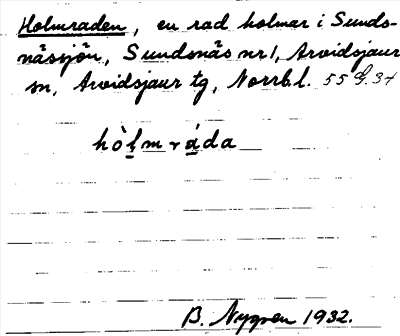 Holmraden, en rad holmar i Sunds-
nässjön, Sundsnäs nr 1, Arvidsjaur
sn, Arvidsjaur tg, Norrb. l. 55 G. 34
hòl̠m-rá̠da
B. Nygren 1932.